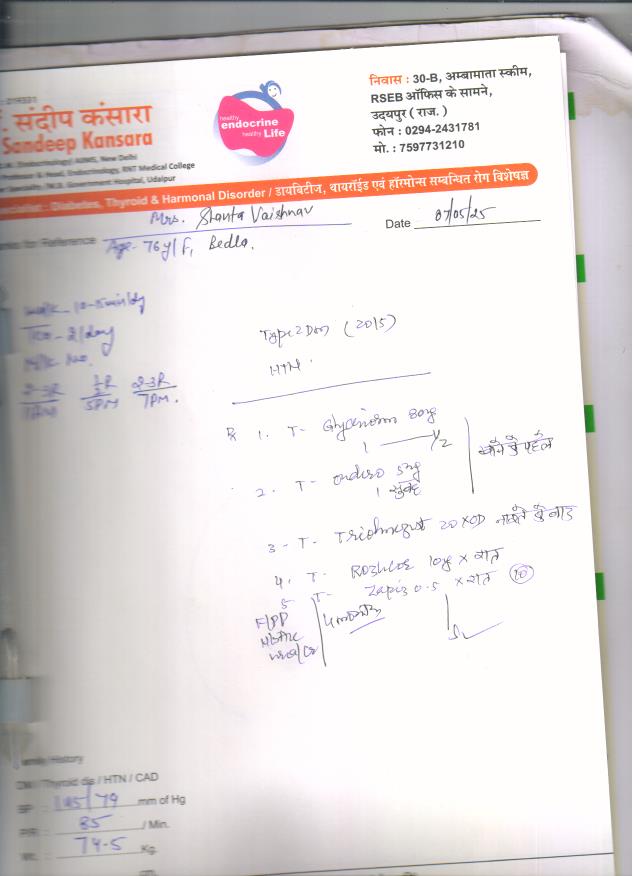 . संदीप कंसारा
Sandeep Kansara
Endocrinology) AIIMS, New Delhi
& Head, Endocrinology, RNT Medical College
Government Hospital, Udaipur
healthy
endocrine
healthy Life
निवास : 30-B, अम्बामाता स्कीम,
RSEB ऑफिस के सामने,
उदयपुर ( राज. )
फोन : 0294-2431781
मो. : 7597731210
Diabetes, Thyroid & Harmonal Disorder / डायबिटीज, थायरॉईड एवं हॉरमोन्स सम्बन्धित रोग विशेषज्ञ
Mrs. Shanta Vaishnav
Date 07/05/25
for Reference Age- 76y/f, Bedla.
walk - 10-15min/dy
- 2/day
No.
2-3R
5PM 2-3R
7PM.
Type 2 Dm (2015)
HTN
Rx 1. T- Glycinorm 80mg
1 — 1/2
खाने से पहले
2. T- ondero 5mg
1 सुबह
3 - T- 20 x OD नाश्ते के बाद
4. T- 10mg x रात
5 T- Zapiz 0.5 x रात (10)
F/PP
HbA1c
urea/Cr
Family History
DM / Thyroid dis / HTN / CAD
BP : 145/79 mm of Hg
P/R : 85 / Min.
Wt. : 74.5 Kg.
cm.